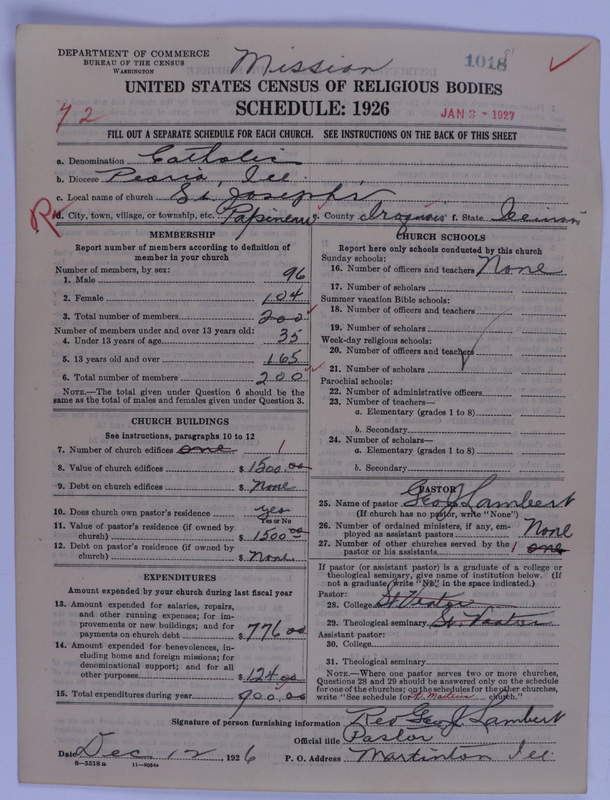 DEPARTMENT OF COMMERCE
BUREAU OF THE CENSUS
WASHINGTON
Mission
1018
UNITED STATES CENSUS OF RELIGIOUS BODIES
SCHEDULE: 1926
72
JAN 3 - 1927
FILL OUT A SEPARATE SCHEDULE FOR EACH CHURCH. SEE INSTRUCTIONS ON THE BACK OF THIS SHEET
a. Denomination Catholic
b. Diocese Peoria, Ill.
c. Local name of church St Joseph's
R d. City, town, village, or township, etc. Papineau e. County Iroquois f. State Illinois
MEMBERSHIP
Report number of members according to definition of member in your church
Number of members, by sex:
1. Male 96
2. Female 104
3. Total number of members 200
Number of members under and over 13 years old:
4. Under 13 years of age 35
5. 13 years old and over 165
6. Total number of members 200
NOTE.—The total given under Question 6 should be the same as the total of males and females given under Question 3.
CHURCH BUILDINGS
See instructions, paragraphs 10 to 12
7. Number of church edifices one 1
8. Value of church edifices $ 1500.00
9. Debt on church edifices $ None
10. Does church own pastor's residence yes
Yes or No
11. Value of pastor's residence (if owned by church) $ 1500 00
12. Debt on pastor's residence (if owned by church) $ None
EXPENDITURES
Amount expended by your church during last fiscal year
13. Amount expended for salaries, repairs, and other running expenses; for improvements or new buildings; and for payments on church debt $ 776 00
14. Amount expended for benevolences, including home and foreign missions; for denominational support; and for all other purposes $ 124 00
15. Total expenditures during year 900.00
CHURCH SCHOOLS
Report here only schools conducted by this church
Sunday schools:
16. Number of officers and teachers None
17. Number of scholars
Summer vacation Bible schools:
18. Number of officers and teachers
19. Number of scholars
Week-day religious schools:
20. Number of officers and teachers
21. Number of scholars
Parochial schools:
22. Number of administrative officers
23. Number of teachers—
a. Elementary (grades 1 to 8)
b. Secondary
24. Number of scholars—
a. Elementary (grades 1 to 8)
b. Secondary
PASTOR
25. Name of pastor Geo J Lambert
(If church has no pastor, write "None")
26. Number of ordained ministers, if any, employed as assistant pastors None
27. Number of other churches served by the pastor or his assistants 1 one
If pastor (or assistant pastor) is a graduate of a college or theological seminary, give name of institution below. (If not a graduate, write "No" in the space indicated.)
Pastor:
28. College St Viator
29. Theological seminary St. Viator
Assistant pastor:
30. College
31. Theological seminary
NOTE.—Where one pastor serves two or more churches, Questions 28 and 29 should be answered only on the schedule for one of the churches; on the schedules for the other churches, write "See schedule for St. Martin's church."
Signature of person furnishing information Rev Geo J Lambert
Official title Pastor
Date Dec 12, 1926 P. O. Address Martinton Ill
6—5518a 11—9054